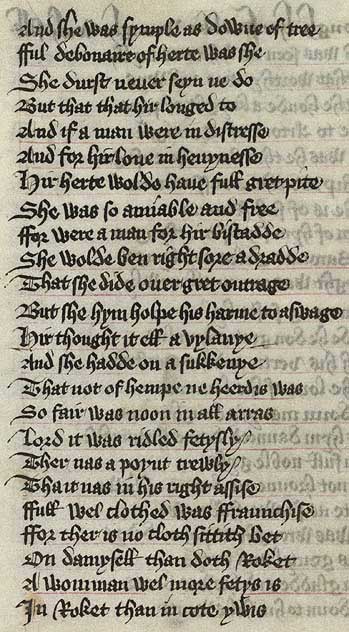 And she was symple as dowue of tree
fful debonaire of herte was she
She durst neuer seyn ne do
But that that hir longed to
And if a man were in distresse
And for hir loue in heuynesse
Hir herte wolde haue full gret pite
She was so amiable and free
ffor were a man for hir bistadde
She wolde ben right sore adradde
That she dide ouer gret outrage
But she hym holpe his harme to aswage
Hir thought it ell a vylanye
And she hadde on a sukkenye
That not of hempe ne heerdis was
So fair was noon in all arras
Lord it was ridled fetysly
Ther nas a poynt trewly
Tha it nas in his right assise
ffull wel clothed was ffraunchise
ffor ther is no cloth sittith bet
On damysell than doth Roket
A womman wel more fetys is
In Roket than in cote ywis